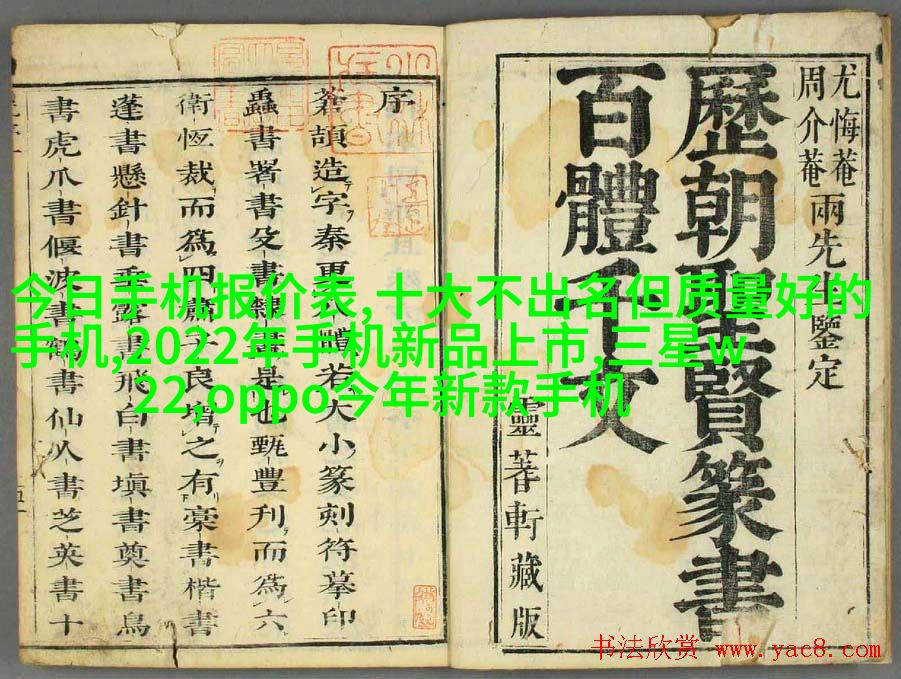 尤悔菴
周介菴
兩先生鑒定
歷朝聖賢篆書
百體千文
靈蓍軒藏版
序
蒼頡造字秦更八體若大小篆刻符摹印
蟲書署書殳書隸書是也甄豐刋而爲六
衛恆裁而爲四蕭子良增之有藁書楷書
蓬書懸針書垂露書飛白書塡書奠書鳥
書虎爪書偃波書鶴書仙人書芝英書十
今日手机报价表,十大不出名但质量好的
手机,2022年手机新品上市,三星w
22,oppo今年新款手机
书法欣赏 www.yac8.com